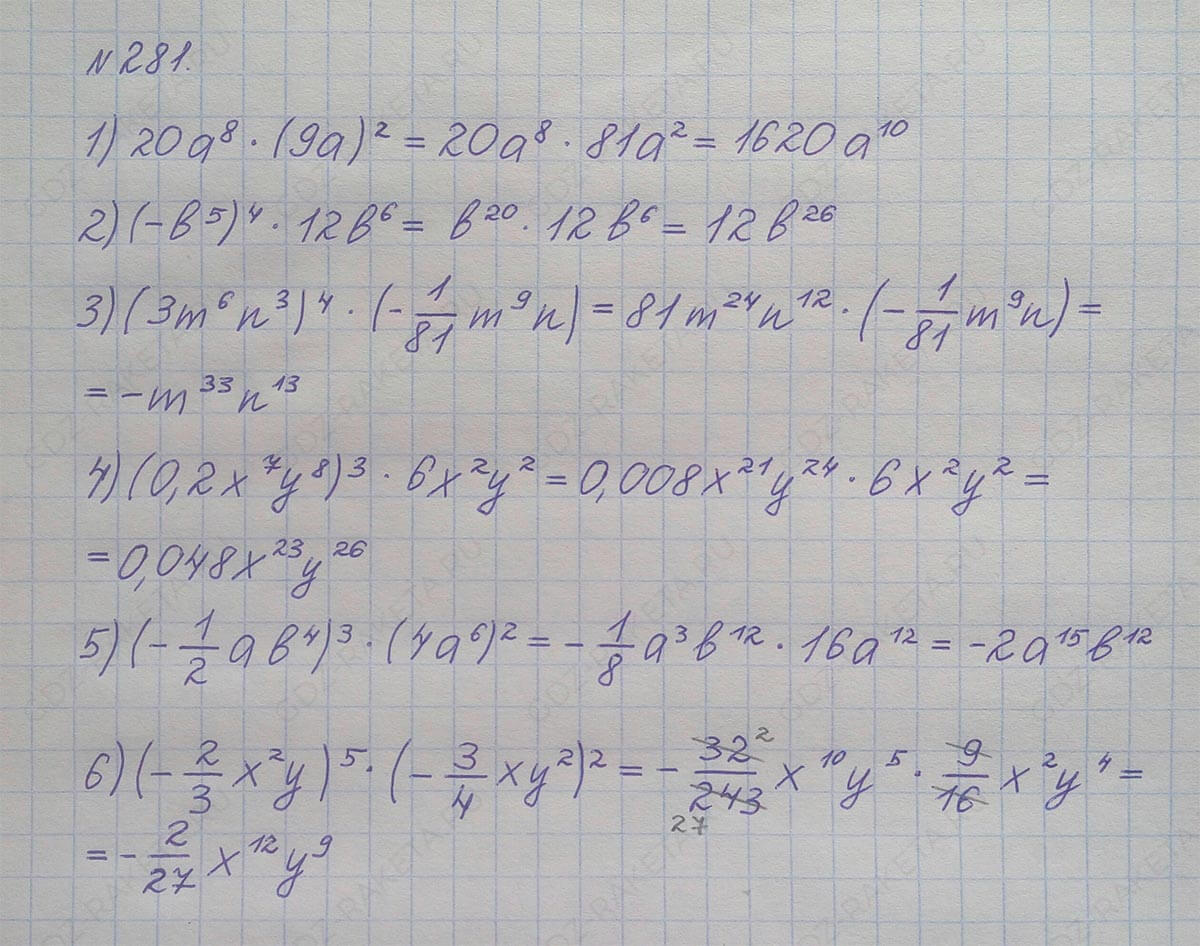 N281.
1) 20a⁸ · (9a)² = 20a⁸ · 81a² = 1620a¹⁰
2) (-b⁵)⁴ · 12b⁶ = b²⁰ · 12b⁶ = 12b²⁶
3) (3m⁶n³)⁴ · (-1/81 m⁹n) = 81m²⁴n¹² · (-1/81 m⁹n) =
= -m³³n¹³
4) (0,2x⁷y⁸)³ · 6x²y² = 0,008x²¹y²⁴ · 6x²y² =
= 0,048x²³y²⁶
5) (-1/2 ab⁴)³ · (4a⁶)² = -1/8 a³b¹² · 16a¹² = -2a¹⁵b¹²
6) (-2/3 x²y)⁵ · (-3/4 xy²)² = -32/243 x¹⁰y⁵ · 9/16 x²y⁴ =
2
27
= -2/27 x¹²y⁹
GDZ-RAKETA.RU